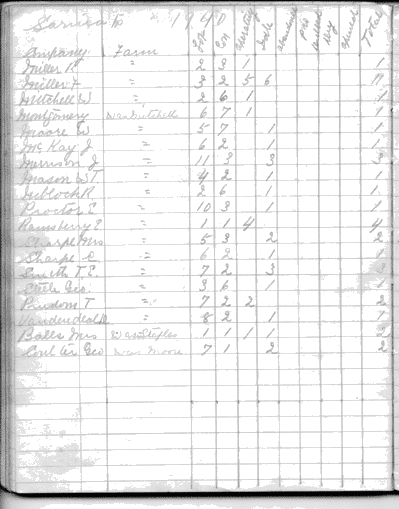 Sarnia Tp 1940
Company Farm Lot Con Operating Idle Abandoned Total
Miller R " 2 3 1 1
Miller F " 3 2 5 6 11
Mitchell W " 2 6 1 1
Montgomery Was Mitchell 6 7 1 1
Moore W " 5 7 1 1
McKay J " 6 2 1 1
Merrison J " 11 3 3 3
Mason W T " 4 2 1 1
R " 2 6 1 1
Proctor E " 10 3 1 1
Ramsberry E " 1 1 4 4
Sharpe Mrs " 5 3 2 2
Sharpe C " 6 2 1 1
Smith T. E. " 7 2 3 3
Geo. " 3 6 1 1
T " 7 2 2 2
" 8 2 1 1
Balls Mrs Was Staples 1 1 1 1 2
Coulter Geo Was Moore 7 1 2 2